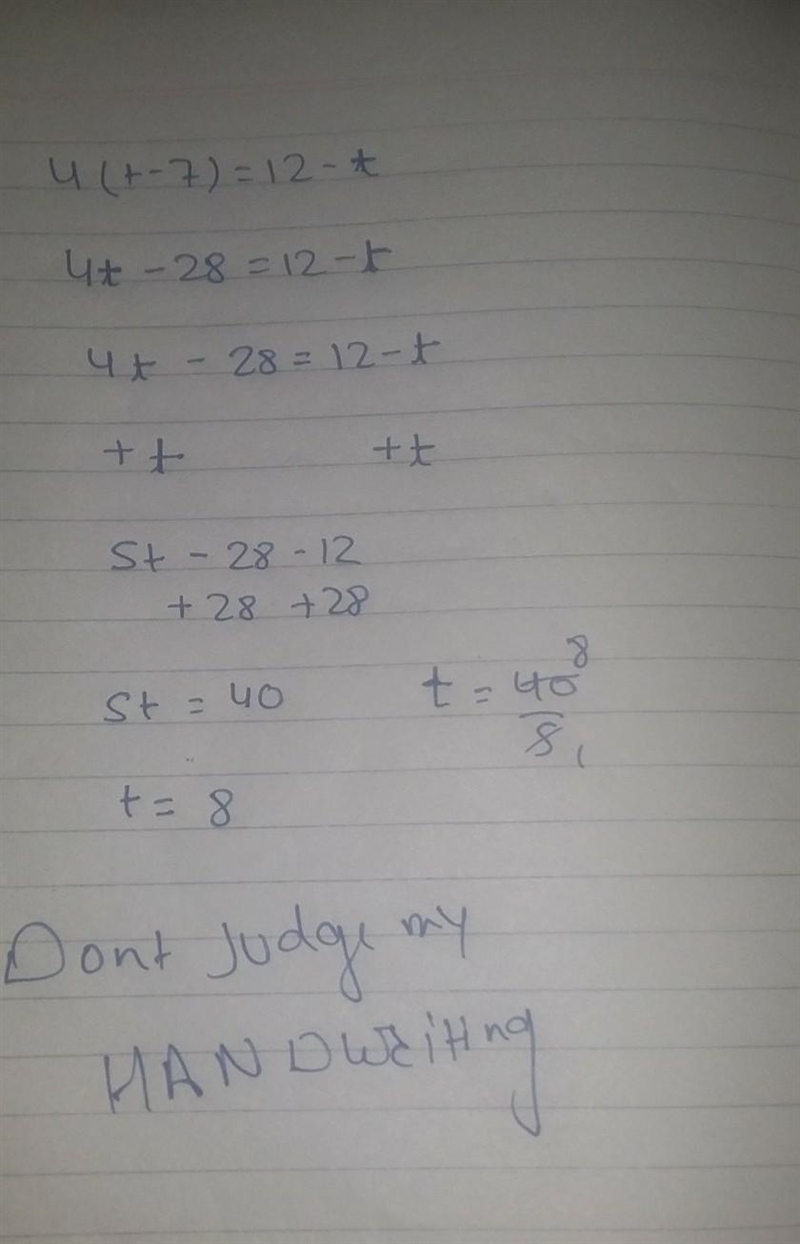 4(t-7)=12-t
4t-28=12-t
4t - 28=12-t
+t +t
5t - 28 - 12
+28 +28
5t = 40 t = 40 8
8 1
t = 8
Dont Judge my
HANDWRiting